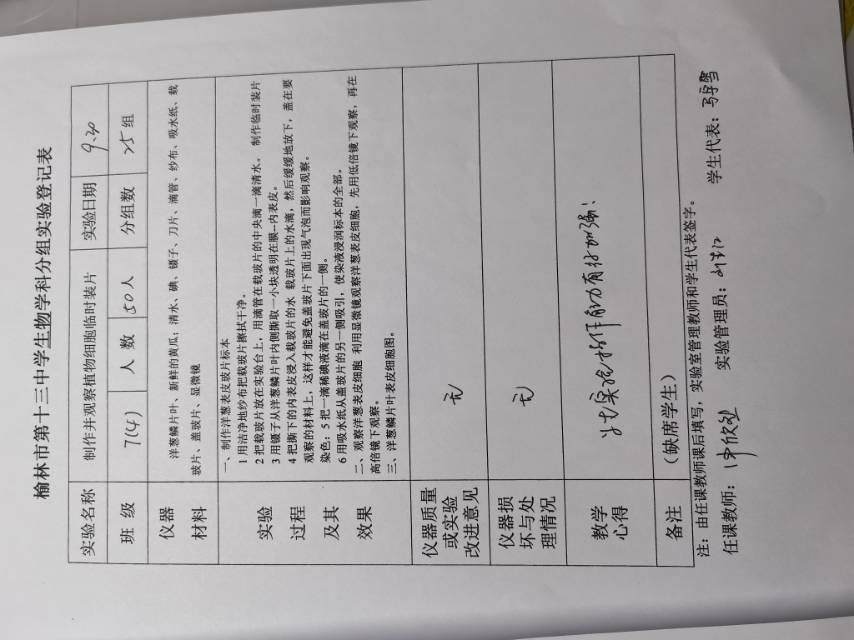 榆林市第十三中学生物学科分组实验登记表
实验名称 制作并观察植物细胞临时装片 实验日期 9.30
班 级 7(4) 人 数 50人 分组数 25组
仪器
材料
洋葱鳞片叶、新鲜的黄瓜；清水、碘、镊子、刀片、滴管、纱布、吸水纸、载
玻片、盖玻片、显微镜
实验
过程
及其
效果
一、制作洋葱表皮玻片标本
1 用洁净地纱布把载玻片擦拭干净。
2 把载玻片放在实验台上，用滴管在载玻片的中央滴一滴清水。 制作临时装片
3 用镊子从洋葱鳞片叶内侧撕取一小块透明在膜--内表皮。
4 把撕下的内表皮浸入载玻片的水 载玻片上的水滴，然后缓缓地放下，盖在要
观察的材料上，这样才能避免盖玻片下面出现气泡而影响观察。
染色：5 把一滴稀碘液滴在盖玻片的一侧。
6 用吸水纸从盖玻片的另一侧吸引，使染液浸润标本的全部。
二、观察洋葱表皮细胞 利用显微镜观察洋葱表皮细胞，先用低倍镜下观察，再在
高倍镜下观察。
三、洋葱鳞片叶表皮细胞图。
仪器质量
或实验
改进意见
无
仪器损
坏与处
理情况
无
教学
心得
实验操作能力有待加强！
备注 （缺席学生）
注：由任课教师课后填写，实验室管理教师和学生代表签字。
任课教师： 实验管理员： 学生代表：